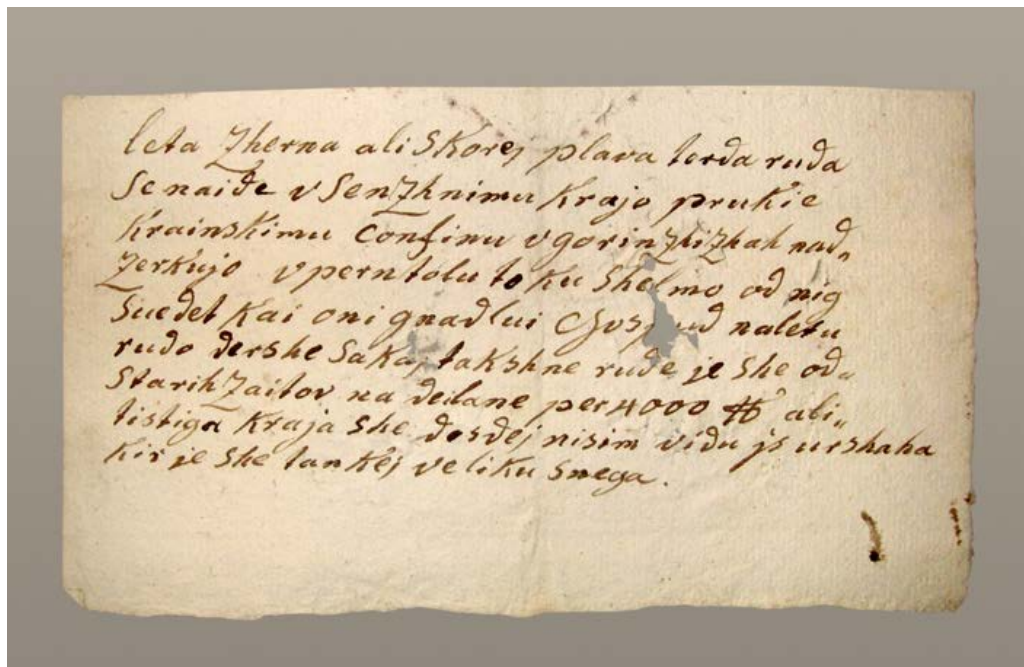 leta Zherna ali Skorej plava terda ruda
se naide v Senzhnimu Krajo prukie
Krainskimu Confinu v gorinzhizhah nad„
Zerkujo v perntolu toku Shelmo od nig
Suedet kai oni gnadlui Gospud na letu
rudo dershe Saka, takshne rude je she od„
Starih Zaitov na dedane per 4000 ℔ ali„
tistiga Kraja she dosdej nisim vidu js urshaha
Kir je she tankej veliku Snega.